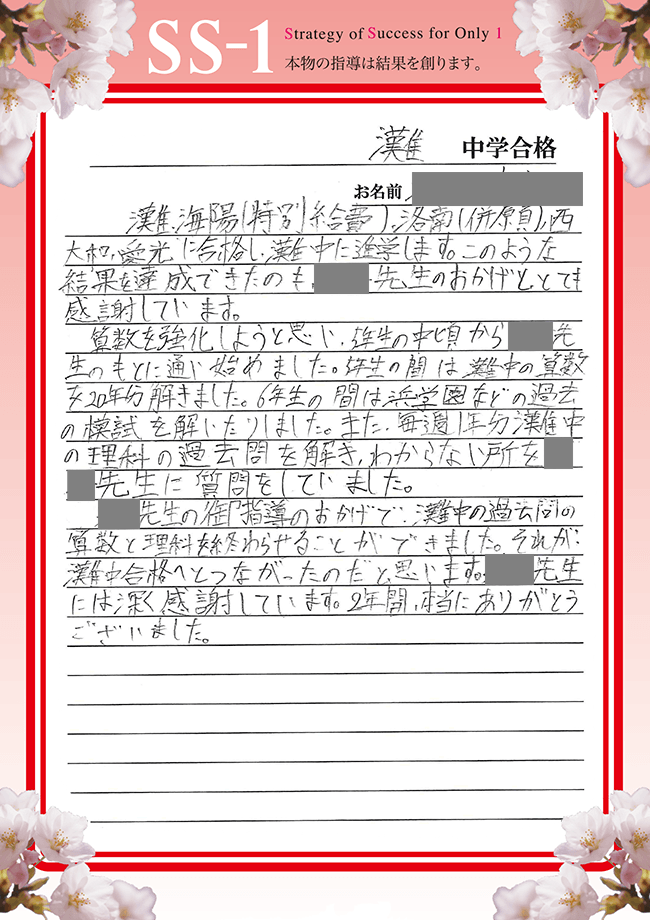 SS-1
Strategy of Success for Only 1
本物の指導は結果を創ります。
灘 中学合格
お名前
灘、海陽(特別給費)、洛南(併願)、西
大和、愛光に合格し、灘中に進学します。このような
結果を達成できたのも、先生のおかげと、とても
感謝しています。
算数を強化しようと思い、5年生の中頃から先
生のもとに通い始めました。5年生の間は灘中の算数
を20年分解きました。6年生の間は浜学園などの過去
の模試を解いたりしました。また、毎週1年分灘中
の理科の過去問を解き、わからない所を
先生に質問をしていました。
先生の御指導のおかげで、灘中の過去問の
算数と理科を終わらせることができました。それが、
灘中合格へとつながったのだと思います。先生
には深く感謝しています。2年間、本当にありがとう
ございました。